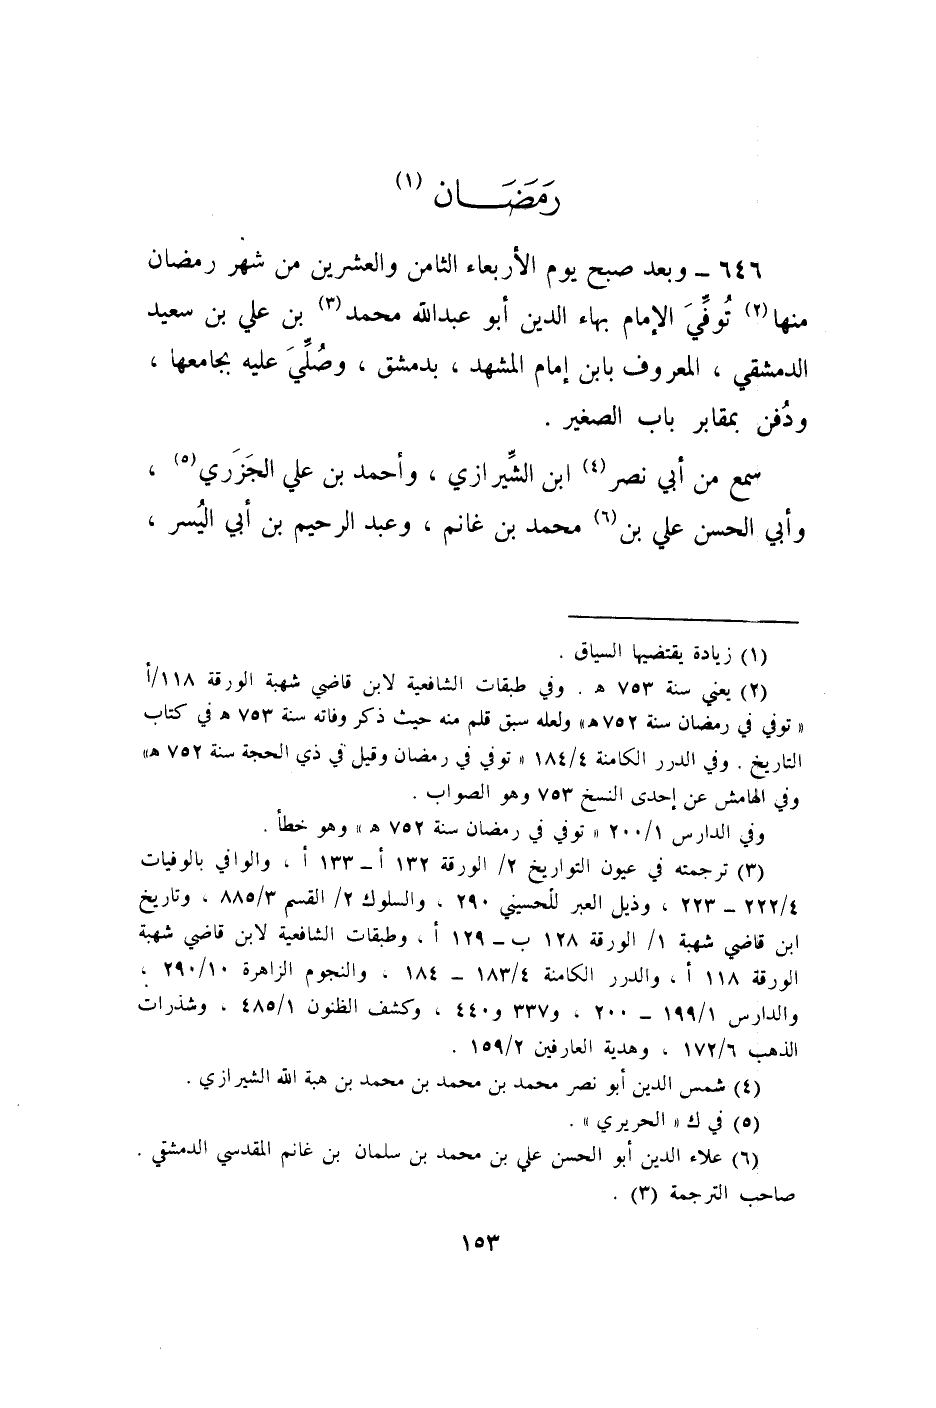 رَمَضَـــان (١)
٦٤٦ ــ وبعد صبح يوم الأربعاء الثامن والعشرين من شهر رمضان
منها(٢) تُوفِّيَ الإمام بهاء الدين أبو عبدالله محمد(٣) بن علي بن سعيد
الدمشقي ، المعروف بابن إمام المشهد ، بدمشق ، وصُلِّيَ عليه بجامعها ،
ودُفن بمقابر باب الصغير .
سمع من أبي نصر(٤) ابن الشِّيرازي ، وأحمد بن علي الجَزَري(٥) ،
وأبي الحسن علي بن(٦) محمد بن غانم ، وعبد الرحيم بن أبي اليُسر ،
(١) زيادة يقتضيها السياق .
(٢) يعني سنة ٧٥٣ هـ . وفي طبقات الشافعية لابن قاضي شهبة الورقة ١١٨/أ
« توفي في رمضان سنة ٧٥٢هـ» ولعله سبق قلم منه حيث ذكر وفاته سنة ٧٥٣ هـ في كتاب
التاريخ . وفي الدرر الكامنة ١٨٤/٤ « توفي في رمضان وقيل في ذي الحجة سنة ٧٥٢ هـ»
وفي الهامش عن إحدى النسخ ٧٥٣ وهو الصواب .
وفي الدارس ٢٠٠/١ « توفي في رمضان سنة ٧٥٢ هـ» وهو خطأ .
(٣) ترجمته في عيون التواريخ ٢/ الورقة ١٣٢ أ ــ ١٣٣ أ ، والوافي بالوفيات
٢٢٢/٤ ــ ٢٢٣ ، وذيل العبر للحسيني ٢٩٠ ، والسلوك ٢/ القسم ٨٨٥/٣ ، وتاريخ
ابن قاضي شهبة ١/ الورقة ١٢٨ ب ــ ١٢٩ أ ، وطبقات الشافعية لابن قاضي شهبة
الورقة ١١٨ أ ، والدرر الكامنة ١٨٣/٤ ــ ١٨٤ ، والنجوم الزاهرة ٢٩٠/١٠ ،
والدارس ١٩٩/١ ــ ٢٠٠ ، و٣٣٧ و٤٤٠ ، وكشف الظنون ٤٨٥/١ ، وشذرات
الذهب ١٧٢/٦ ، وهدية العارفين ١٥٩/٢ .
(٤) شمس الدين أبو نصر محمد بن محمد بن محمد بن هبة الله الشيرازي .
(٥) في ك « الحريري » .
(٦) علاء الدين أبو الحسن علي بن محمد بن سلمان بن غانم المقدسي الدمشقي .
صاحب الترجمة (٣) .
١٥٣